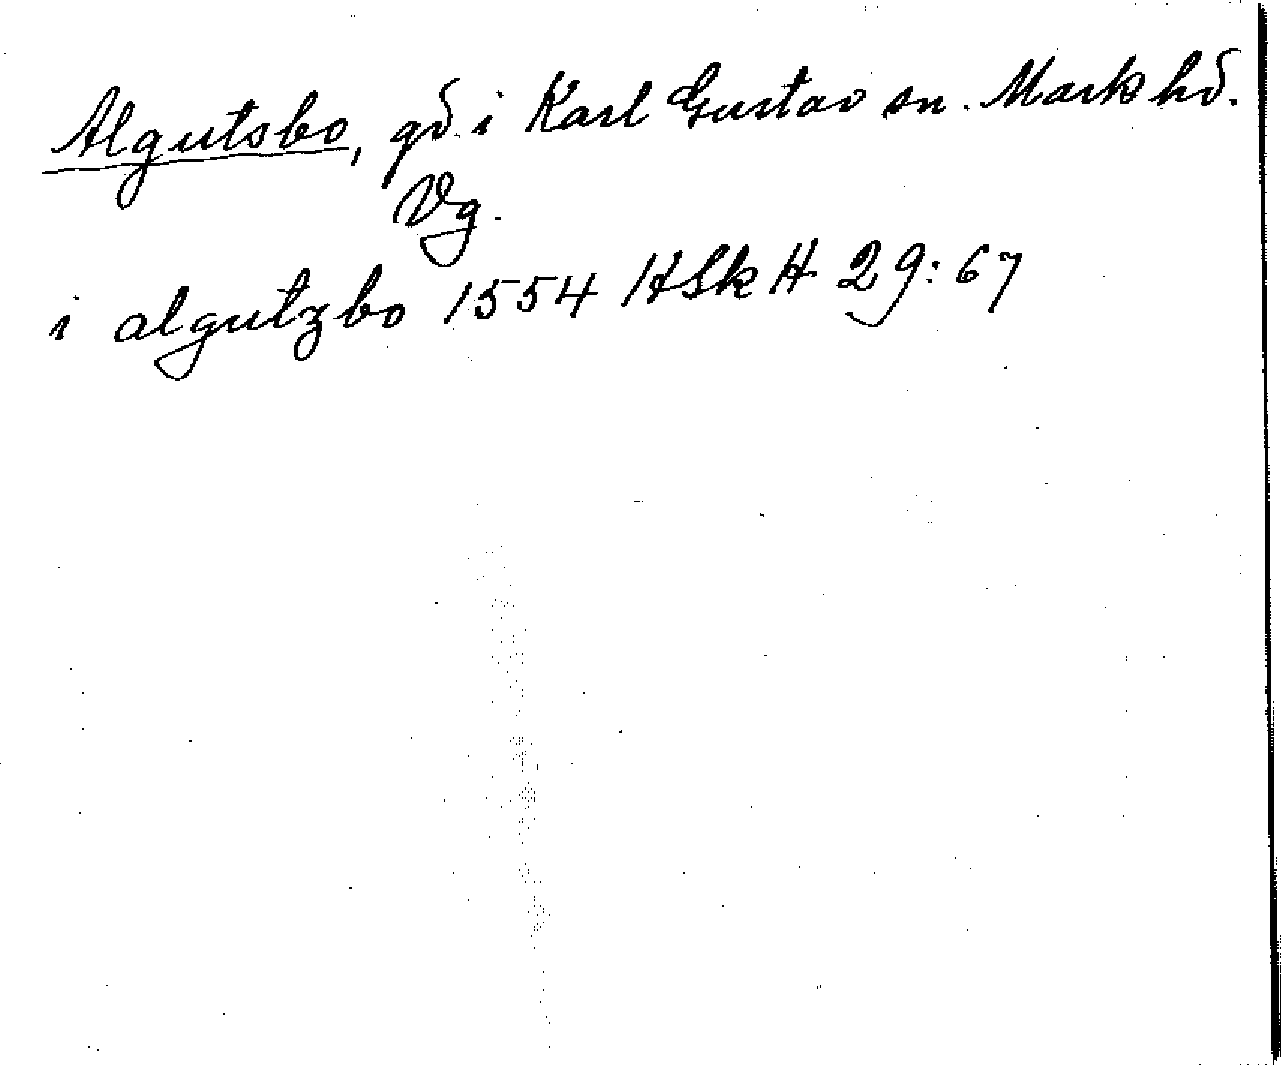 Algutsbo, gd. i Karl Gustav sn. Mark hd.
Vg.
i algutzbo 1554 HSkH 29:67